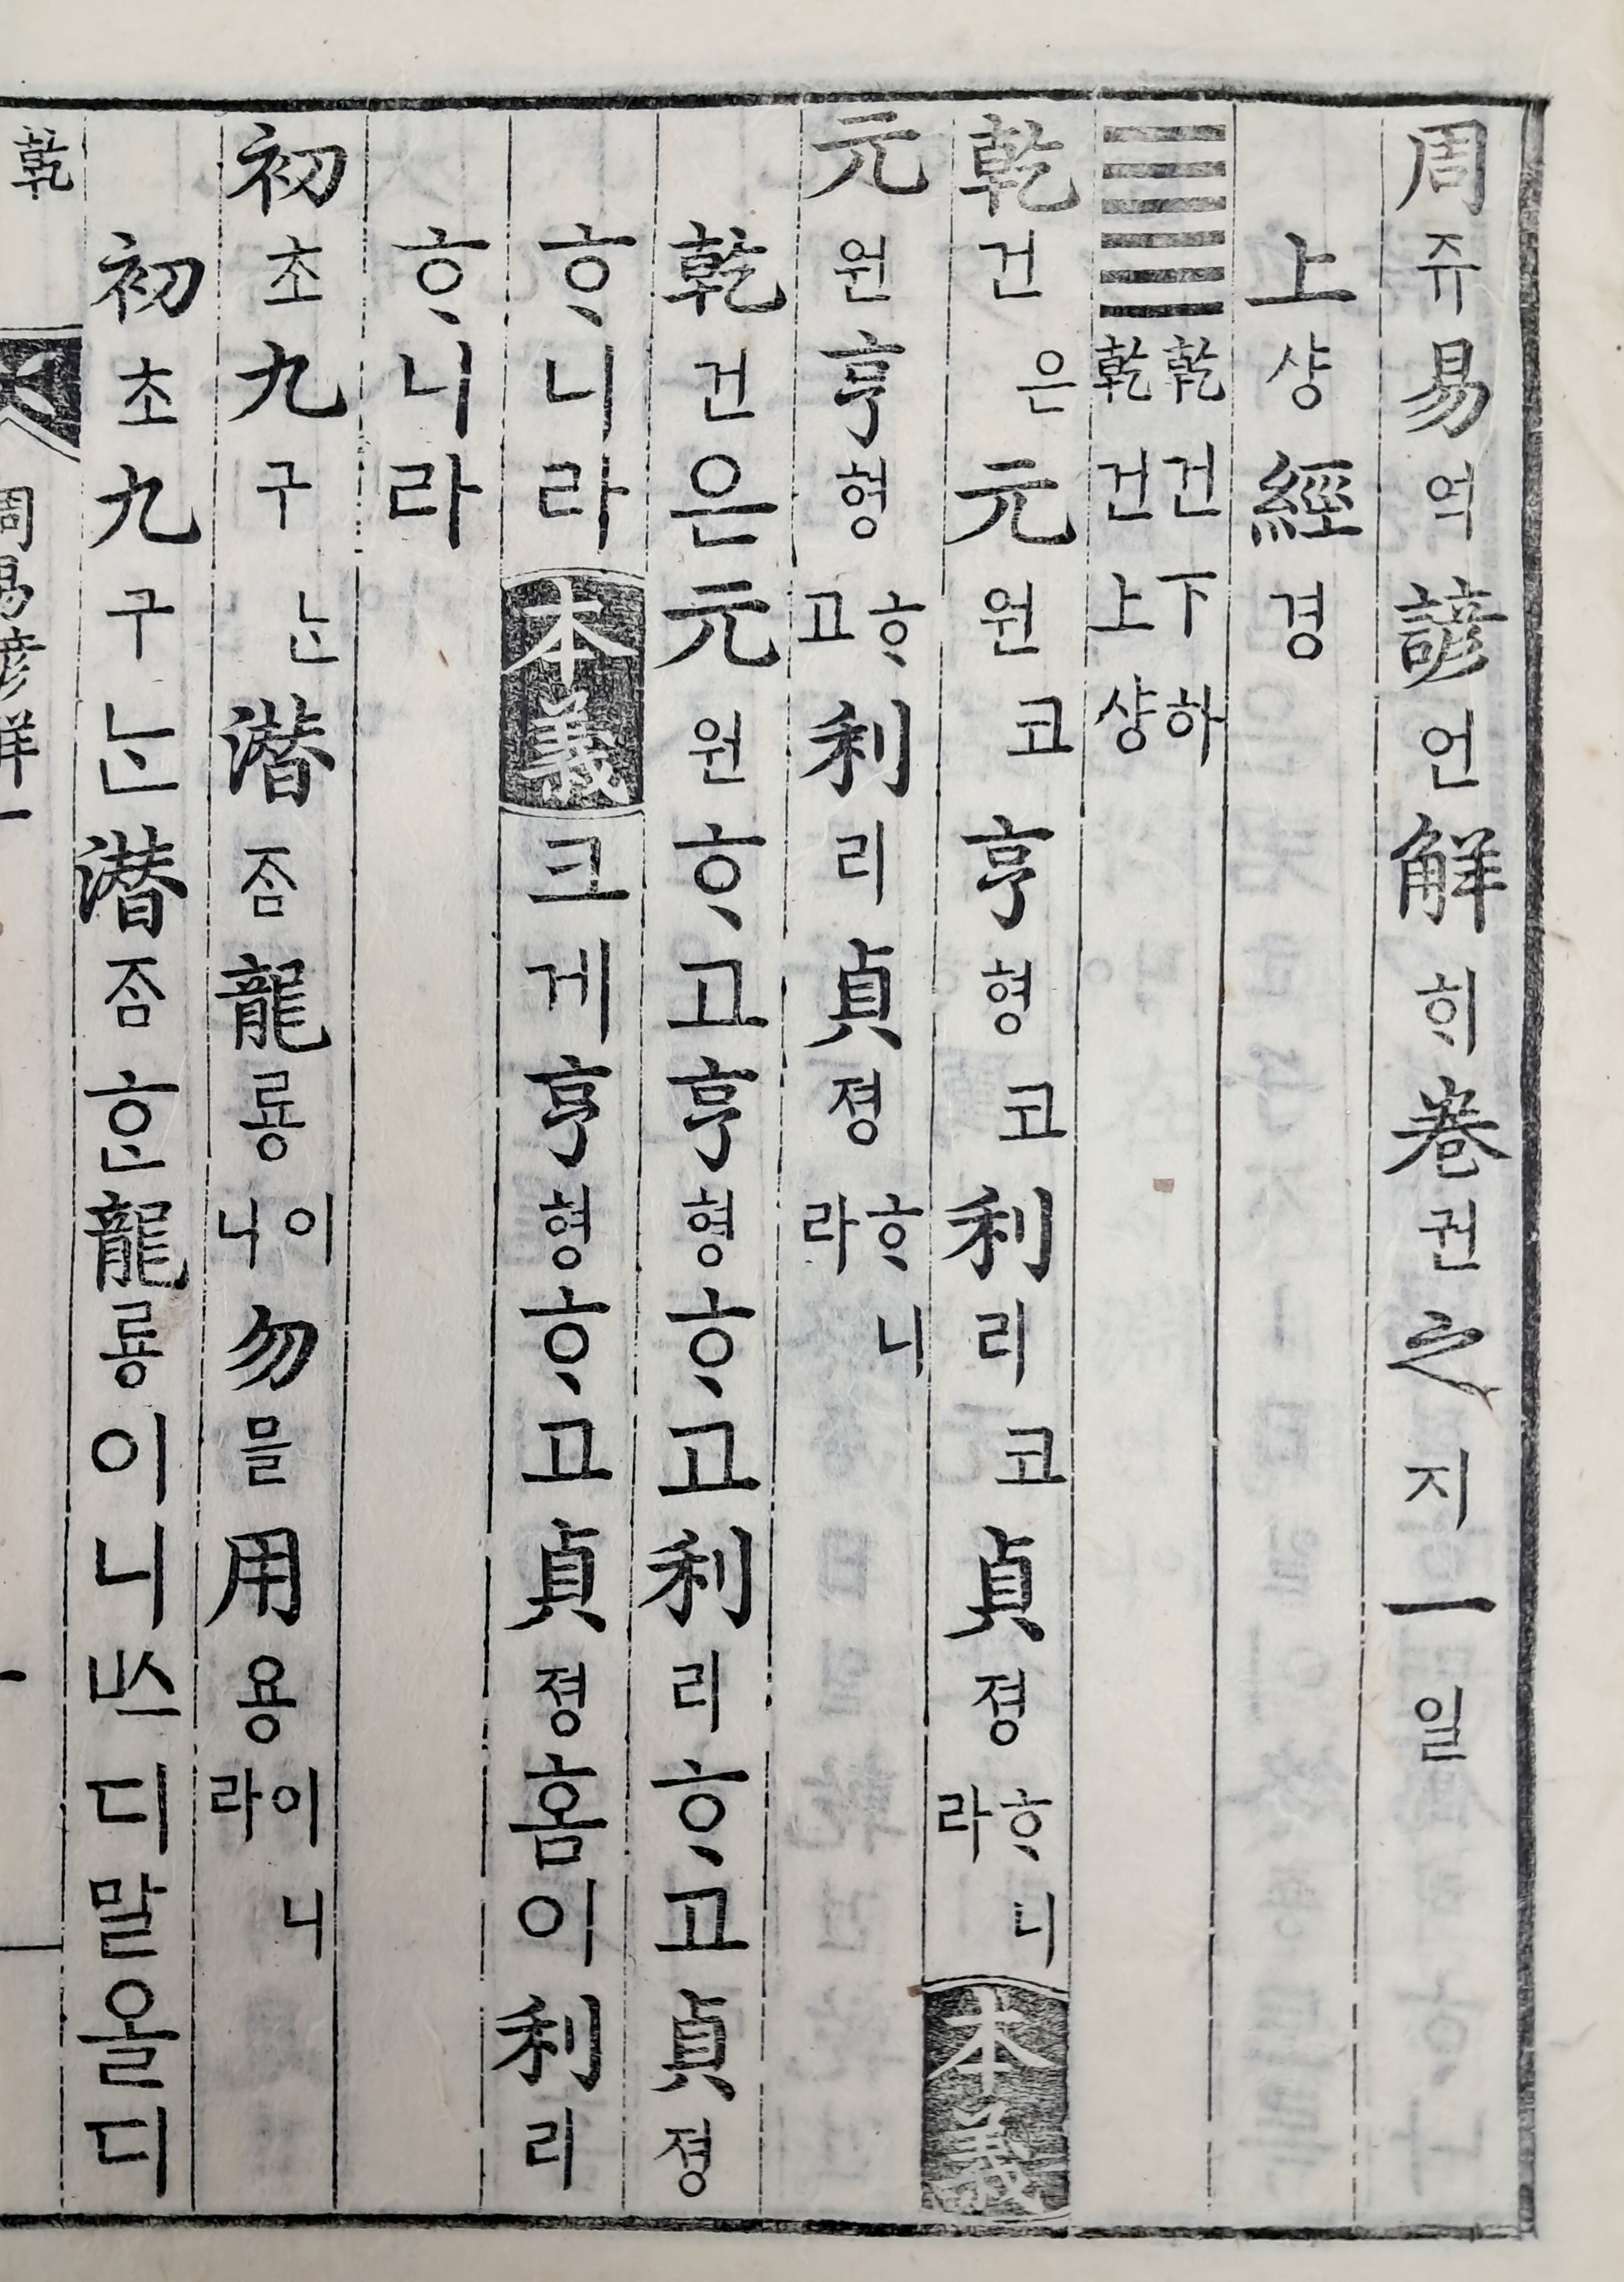 周쥬易역諺언解ᄒᆡ卷권之지一일
上샹經경
䷀乾건下하乾건上샹
乾건은元원코亨형코利리코貞졍ᄒᆞ니라本義
元원亨형ᄒᆞ고利리貞졍ᄒᆞ니라
乾건은元원ᄒᆞ고亨형ᄒᆞ고利리ᄒᆞ고貞졍
ᄒᆞ니라本義크게亨형ᄒᆞ고貞졍홈이利리
ᄒᆞ니라
初초九구ᄂᆞᆫ潜ᄌᆞᆷ龍룡이니勿믈用용이니라
初초九구ᄂᆞᆫ潜ᄌᆞᆷᄒᆞᆫ龍룡이니ᄡᅳ디말올디
乾 周易諺解一